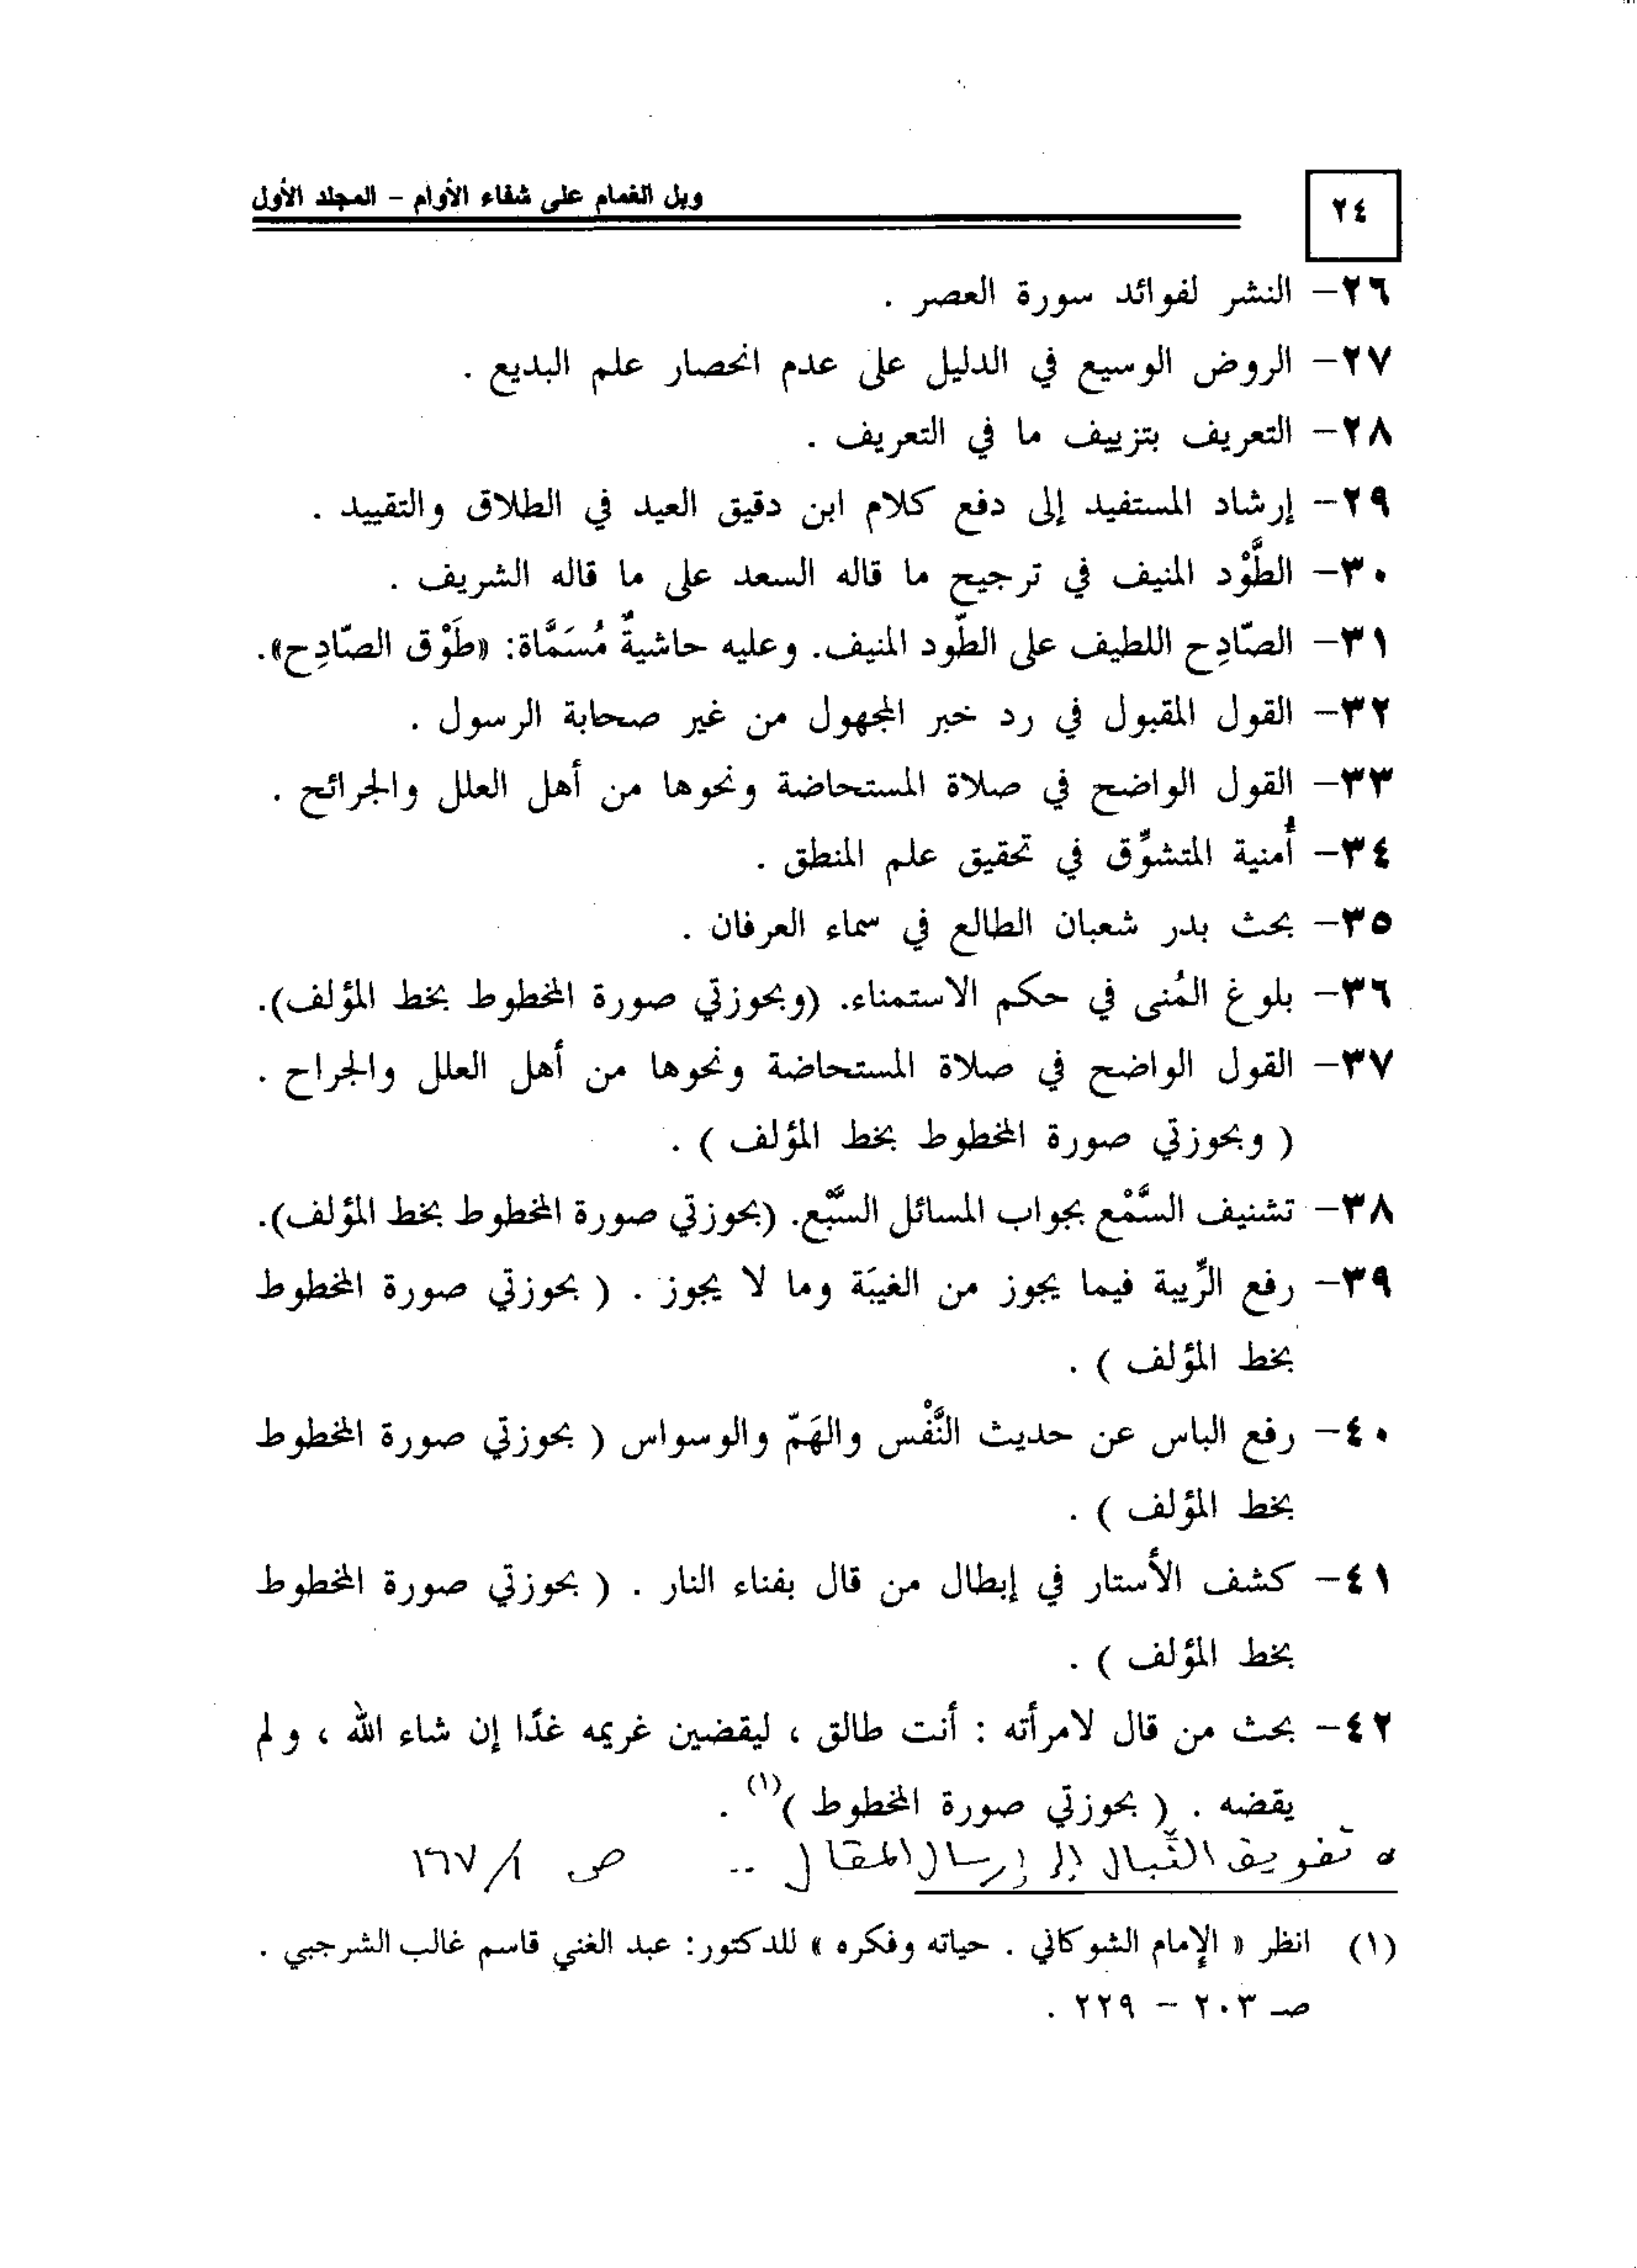 ٢٤
وبل الغمام على شفاء الأوام – المجلد الأول
٢٦– النشر لفوائد سورة العصر .
٢٧– الروض الوسيع في الدليل على عدم انحصار علم البديع .
٢٨– التعريف بتزييف ما في التعريف .
٢٩– إرشاد المستفيد إلى دفع كلام ابن دقيق العيد في الطلاق والتقييد .
٣٠– الطَّوْد المنيف في ترجيح ما قاله السعد على ما قاله الشريف .
٣١– الصّادِح اللطيف على الطّود المنيف. وعليه حاشيةٌ مُسَمَّاة: «طَوْق الصّادِح».
٣٢– القول المقبول في رد خبر المجهول من غير صحابة الرسول .
٣٣– القول الواضح في صلاة المستحاضة ونحوها من أهل العلل والجرائح .
٣٤– أُمنية المتشوِّق في تحقيق علم المنطق .
٣٥– بحث بدر شعبان الطالع في سماء العرفان .
٣٦– بلوغ المُنى في حكم الاستمناء. (وبحوزتي صورة المخطوط بخط المؤلف).
٣٧– القول الواضح في صلاة المستحاضة ونحوها من أهل العلل والجراح .
( وبحوزتي صورة المخطوط بخط المؤلف ) .
٣٨– تشنيف السَّمْع بجواب المسائل السَّبْع. (بحوزتي صورة المخطوط بخط المؤلف).
٣٩– رفع الرِّيبة فيما يجوز من الغيبَة وما لا يجوز . ( بحوزتي صورة المخطوط
بخط المؤلف ) .
٤٠– رفع الباس عن حديث النَّفْس والهَمّ والوسواس ( بحوزتي صورة المخطوط
بخط المؤلف ) .
٤١– كشف الأستار في إبطال من قال بفناء النار . ( بحوزتي صورة المخطوط
بخط المؤلف ) .
٤٢– بحث من قال لامرأته : أنت طالق ، ليقضين غريمه غدًا إن شاء الله ، ولم
يقضه . ( بحوزتي صورة المخطوط )(١) .
ه تفويق النِّبال إلى إرسال المقال .. ص ١/ ١٦٧
(١) انظر « الإمام الشوكاني . حياته وفكره » للدكتور: عبد الغني قاسم غالب الشرجبي .
صـ ٢٠٣ – ٢٢٩ .